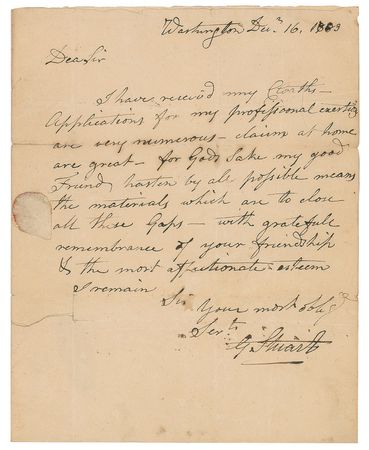 Washington Decr 16. 1803
Dear Sir
I have received my Cloths –
Applications for my professional exertions
are very numerous – claims at home
are great – for Gods Sake my good
Friend hasten by all possible means
the materials which are to close
all these Gaps – with gratefull
remembrance of your friendship
& the most affectionate esteem
I remain
Sir Your most oblig
Servt
G. Stuart